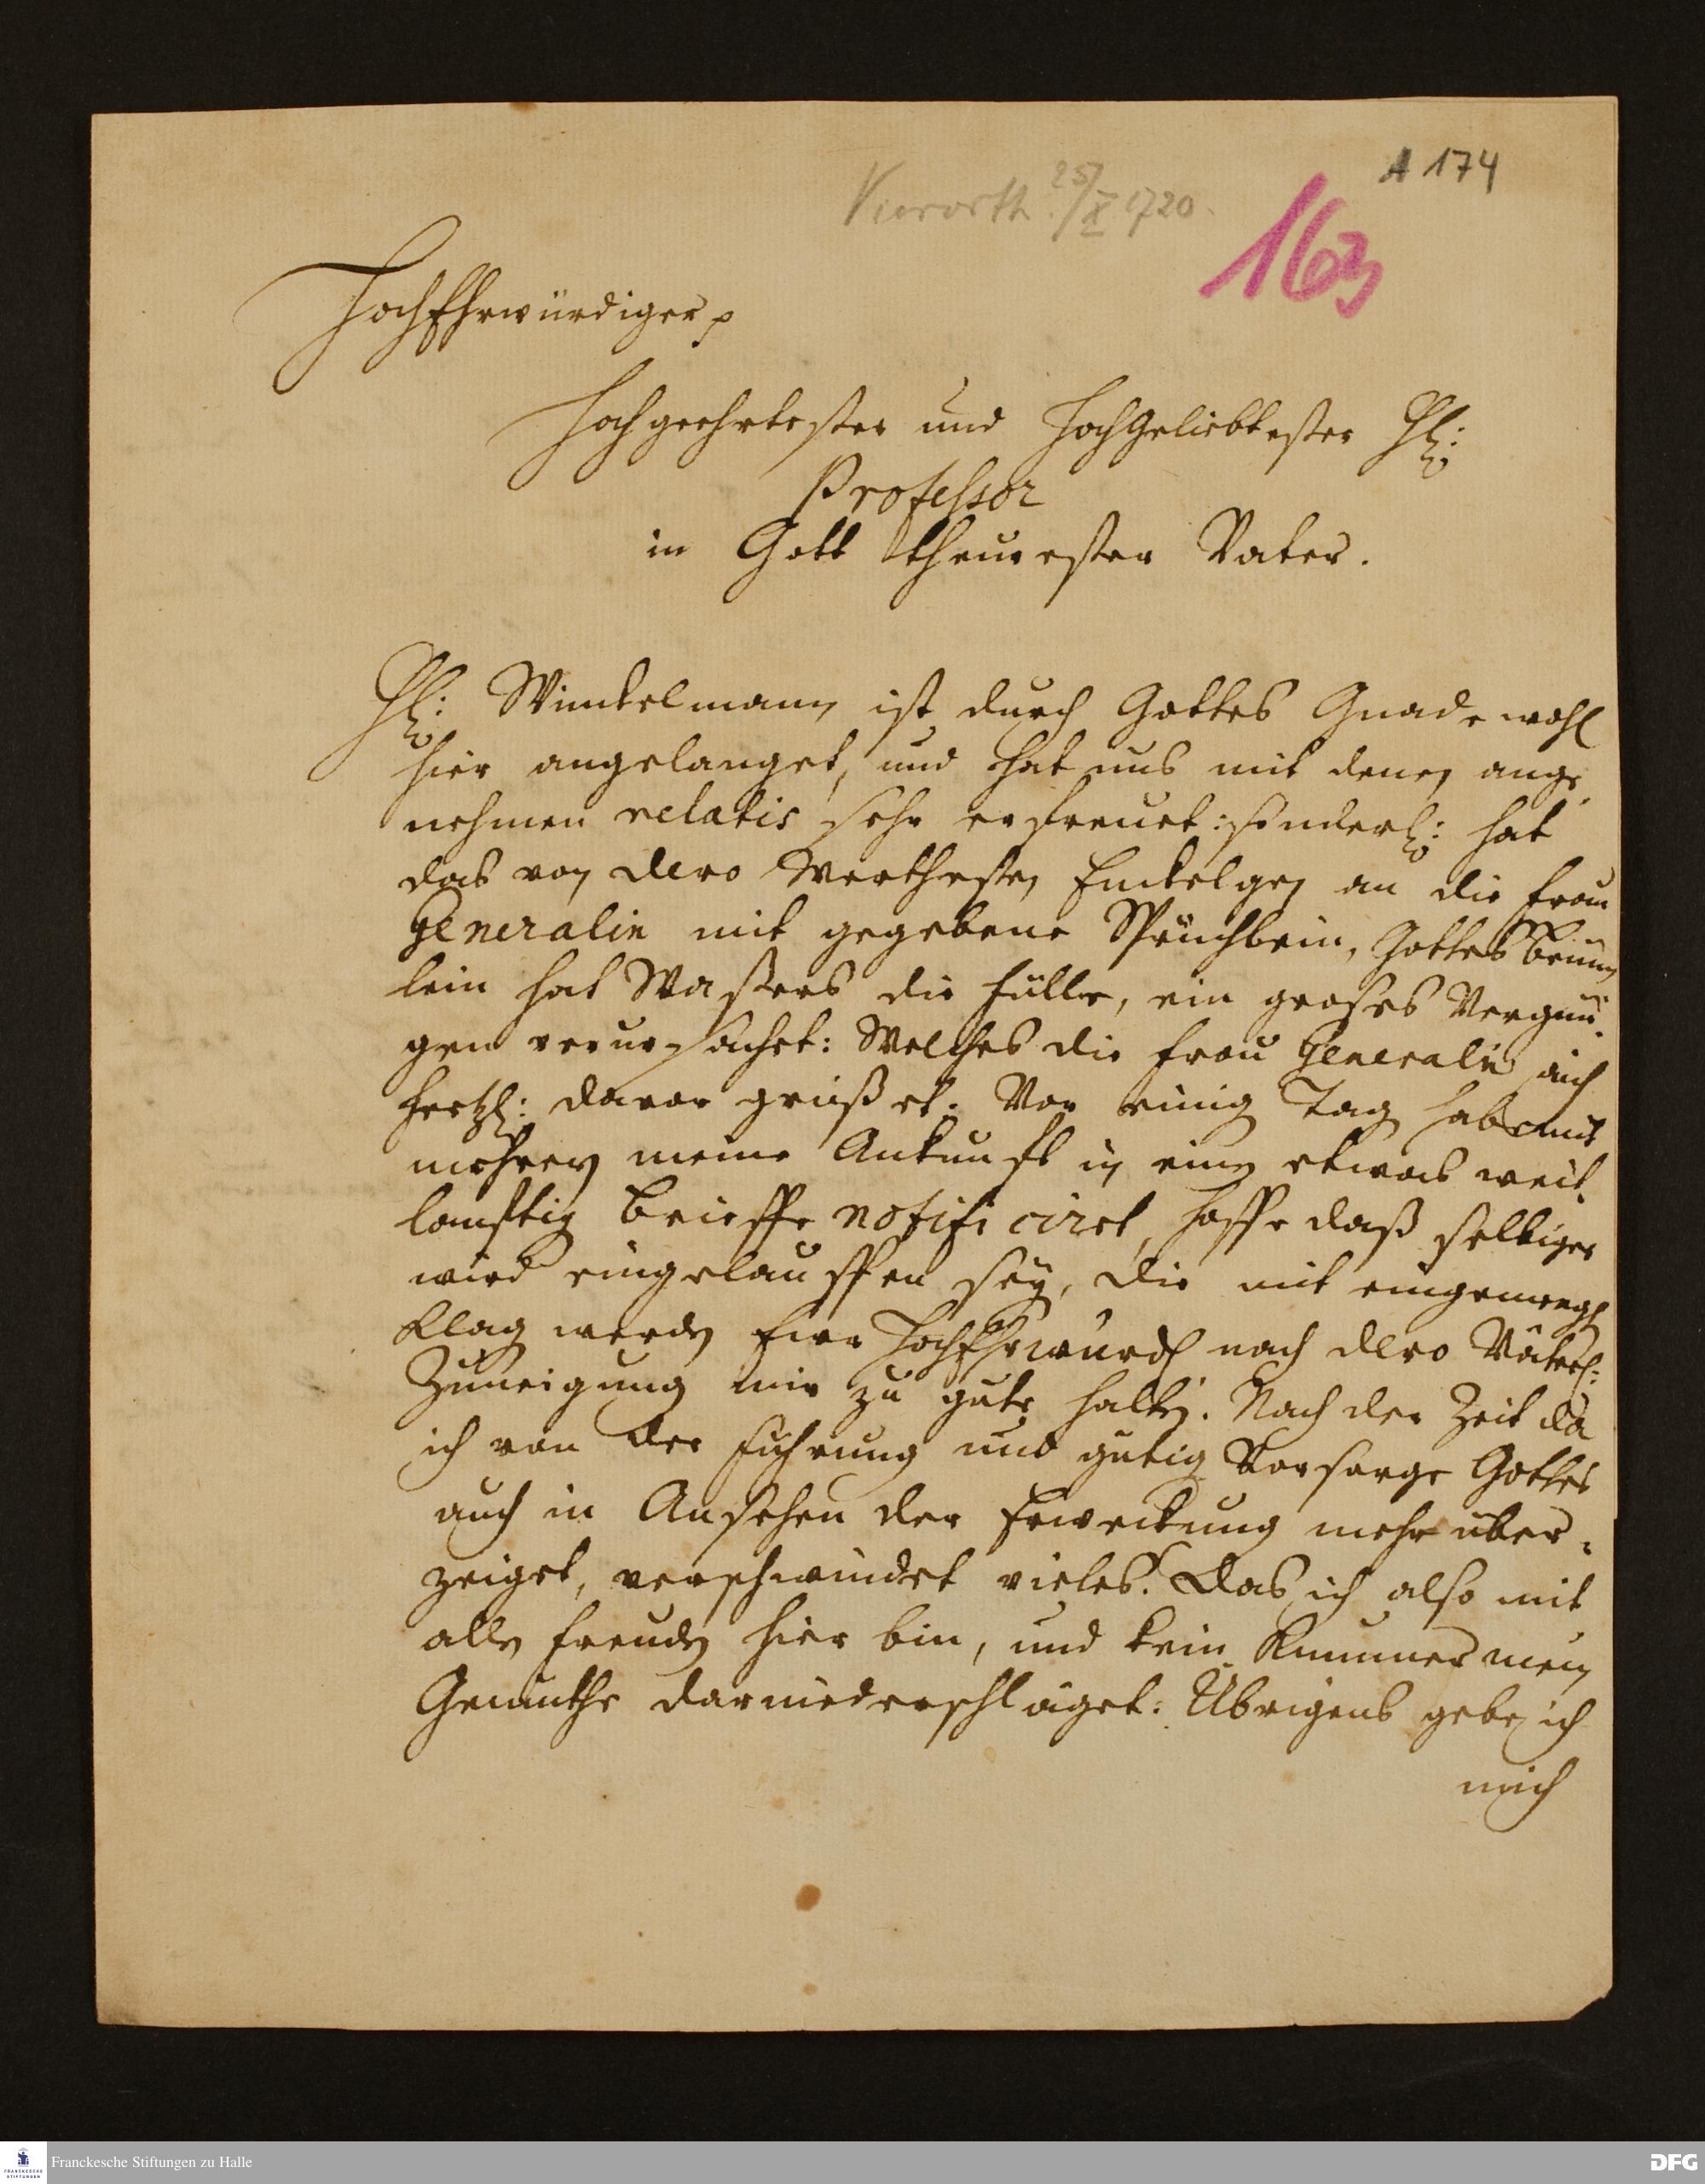 A 174
Vierorth. 25/X 1720.
163
HochEhrwürdiger p
Hochgeehrtester und Hochgeliebtester H:
Professor
in Gott theurester Vater.
H: Winckelmann ist durch Gottes Gnade wohl
hier angelanget, und hat uns mit denen ange
nehmen relatis sehr erfreuet: sonderl: hat
das von dero werthesten Enckelgen an die Frau
Generalin mit gegebene Sprüchlein, Gottes Brünn
lein hat Waßers die Fülle, ein groses Vergnü
gen verursachet: Welches die Frau Generalin auch
hertzl: davor grüßet. Vor einig Tag habe mit
mehren meine Ankunfft in einen etwas weit
läufftig Brieffe notificiret, hoffe daß selbiger
wird eingelauffen sey, die mit eingemengte
Klag werden Eure HochEhrwürd nach dero Väterl:
Zuneigung mir zu gute halten. Nach der Zeit da
ich von der Führung und gütig Vorsorge Gottes
auch in Ansehen der Erweckung mehr über-
zeiget, verschwindet vieles. Das ich also mit
allen Freuden hier bin, und kein Kummer mein
Gemüthe darniederschläget: Übrigens gebe ich
mich
Franckesche Stiftungen zu Halle
FRANCKESCHE STIFTUNGEN
DFG